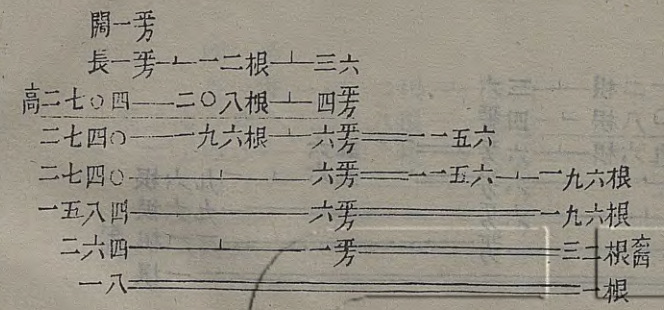 闊一平方
長一平方⊥一二根⊥三六
高二七〇四—二〇八根⊥四平方
二七四〇—一九六根⊥六平方=一一五六
二七四〇⊥六平方=一一五六⊥一九六根
一五八四⊥六平方=一九六根
二六四⊥一平方=三二根
一八=一根